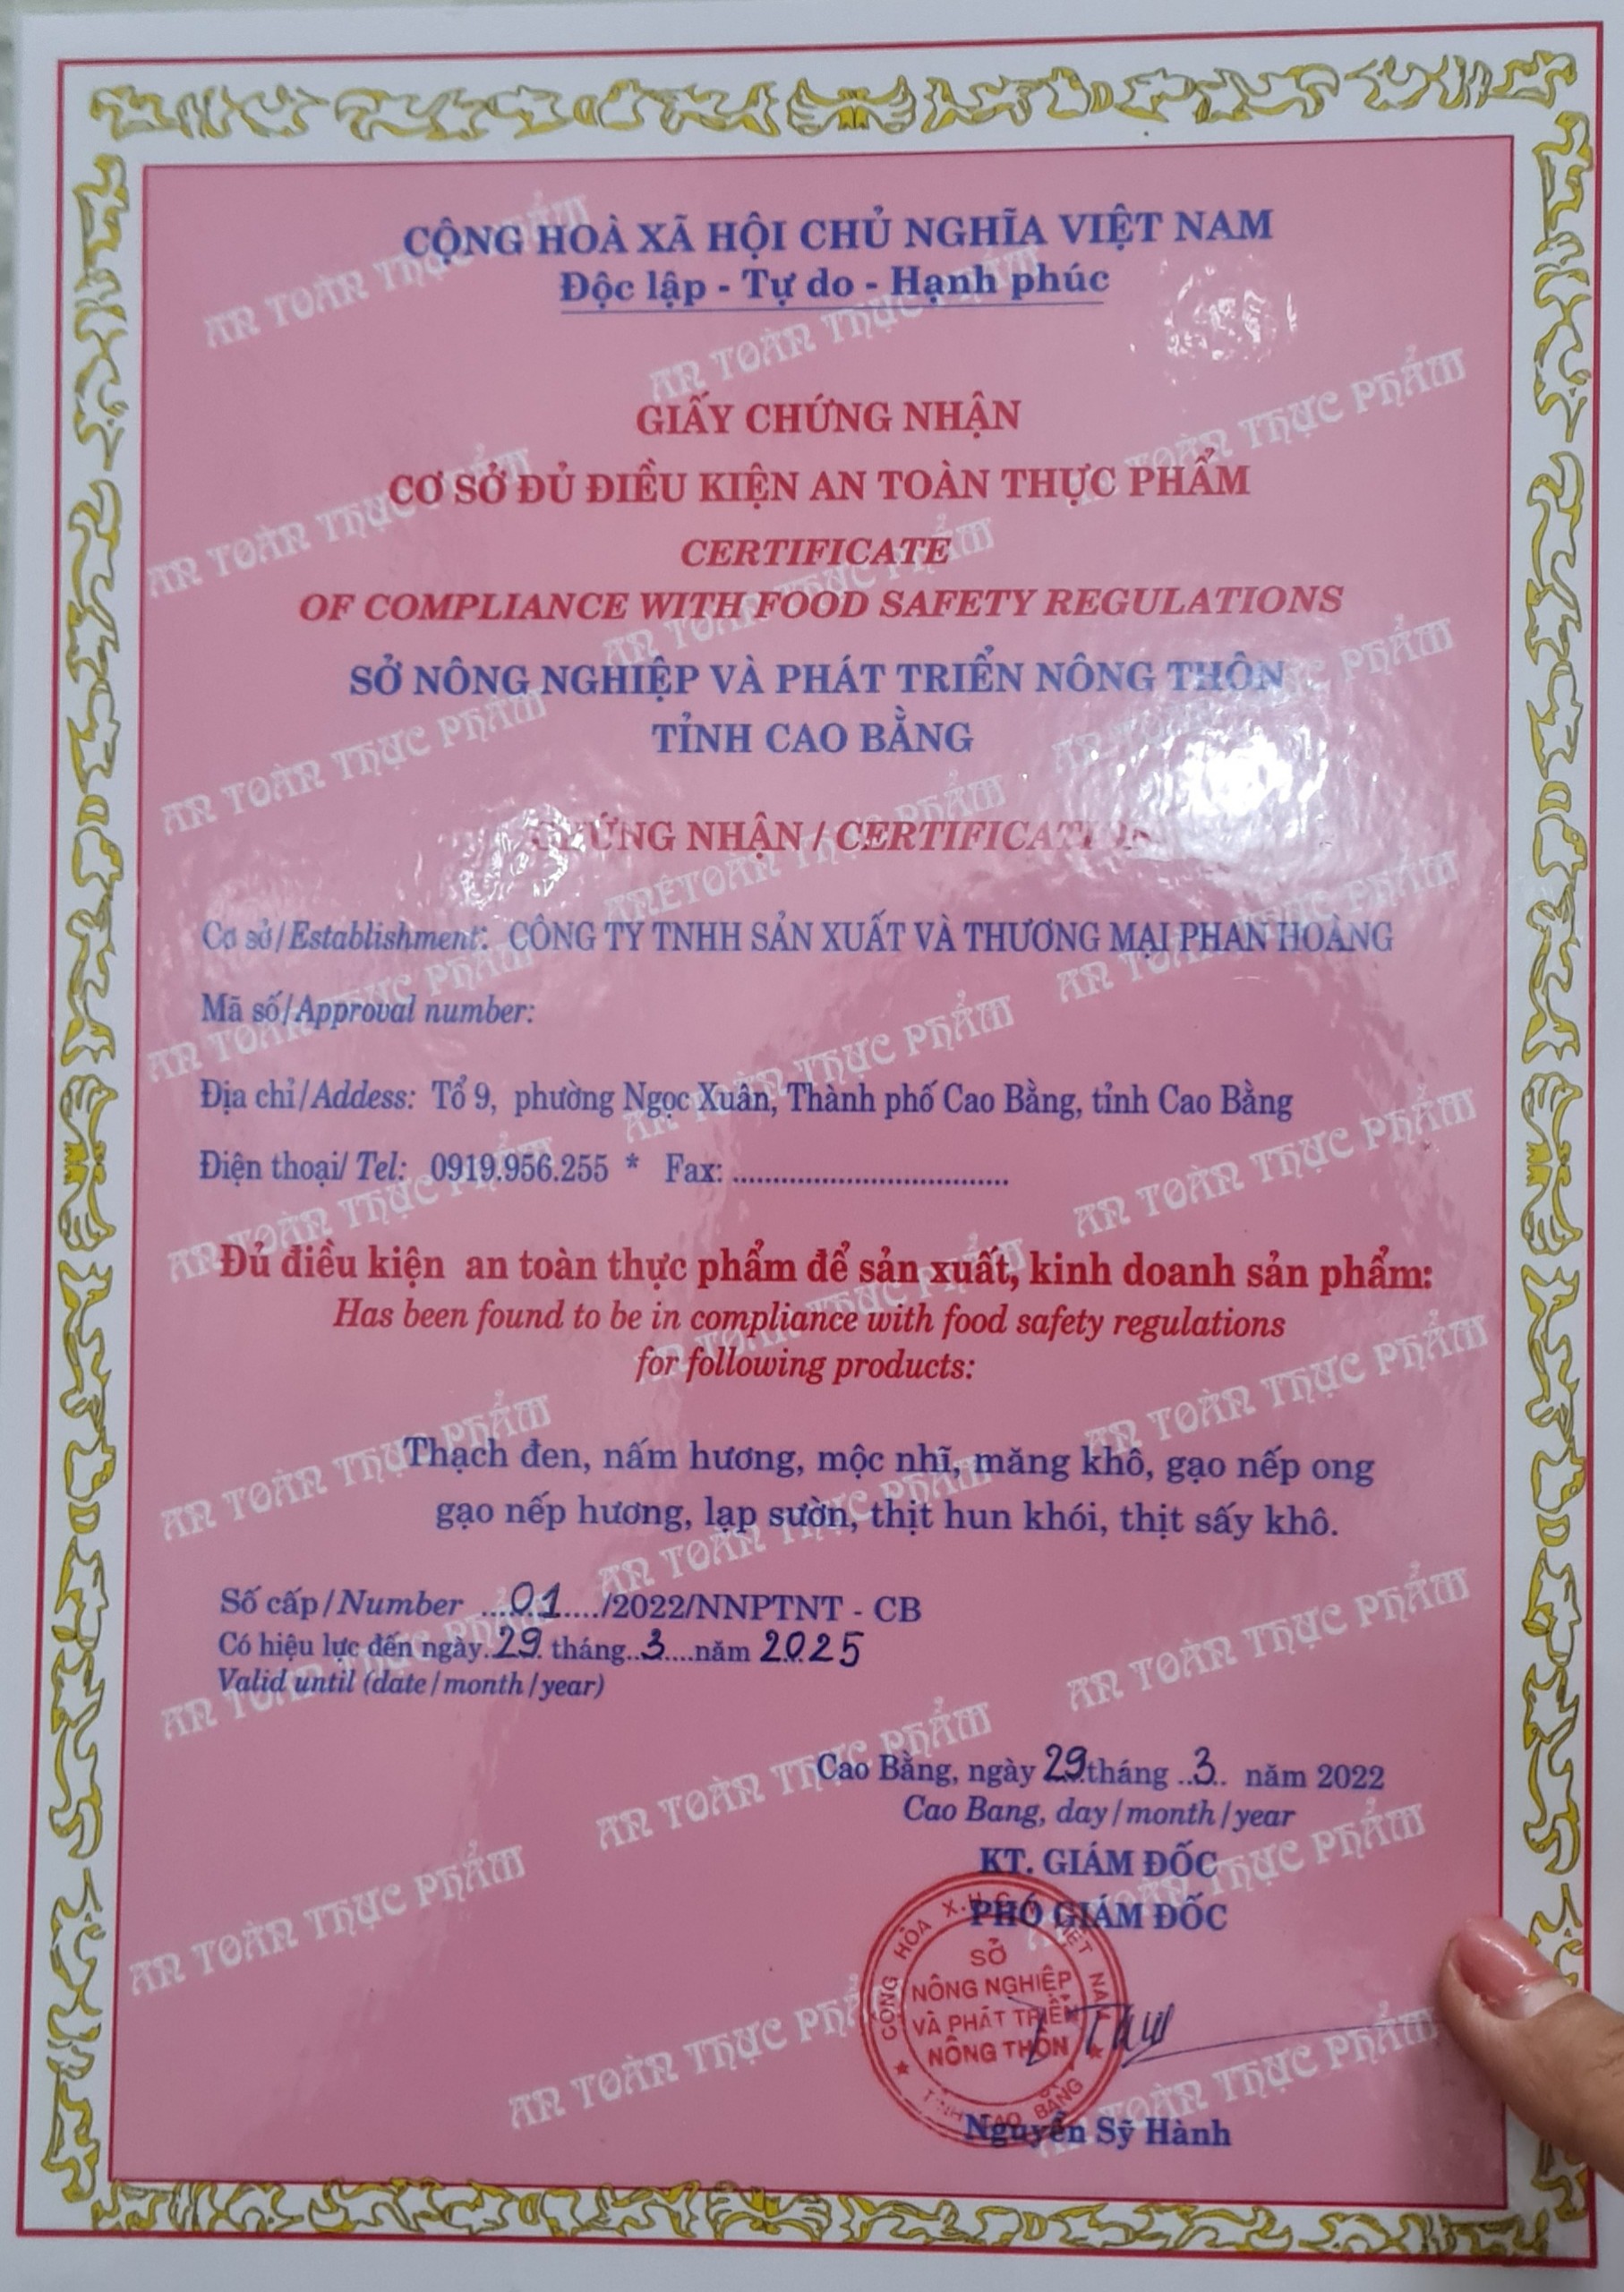 CỘNG HOÀ XÃ HỘI CHỦ NGHĨA VIỆT NAM
Độc lập - Tự do - Hạnh phúc
GIẤY CHỨNG NHẬN
CƠ SỞ ĐỦ ĐIỀU KIỆN AN TOÀN THỰC PHẨM
CERTIFICATE
OF COMPLIANCE WITH FOOD SAFETY REGULATIONS
SỞ NÔNG NGHIỆP VÀ PHÁT TRIỂN NÔNG THÔN
TỈNH CAO BẰNG
CHỨNG NHẬN / CERTIFICATION
Cơ sở/Establishment: CÔNG TY TNHH SẢN XUẤT VÀ THƯƠNG MẠI PHAN HOÀNG
Mã số/Approval number:
Địa chỉ/Addess: Tổ 9, phường Ngọc Xuân, Thành phố Cao Bằng, tỉnh Cao Bằng
Điện thoại/ Tel: 0919.956.255 * Fax: ..................................
Đủ điều kiện an toàn thực phẩm để sản xuất, kinh doanh sản phẩm:
Has been found to be in compliance with food safety regulations
for following products:
Thạch đen, nấm hương, mộc nhĩ, măng khô, gạo nếp ong
gạo nếp hương, lạp sườn, thịt hun khói, thịt sấy khô.
Số cấp/Number ....01...../2022/NNPTNT - CB
Có hiệu lực đến ngày.29. tháng..3....năm 2025
Valid until (date/month/year)
Cao Bằng, ngày 29 tháng ..3.. năm 2022
Cao Bang, day/month/year
KT. GIÁM ĐỐC
PHÓ GIÁM ĐỐC
CỘNG HÒA X.H.C.N VIỆT NAM
SỞ
NÔNG NGHIỆP
VÀ PHÁT TRIỂN
NÔNG THÔN
TỈNH CAO BẰNG
Nguyễn Sỹ Hành
AN TOÀN THỰC PHẨM